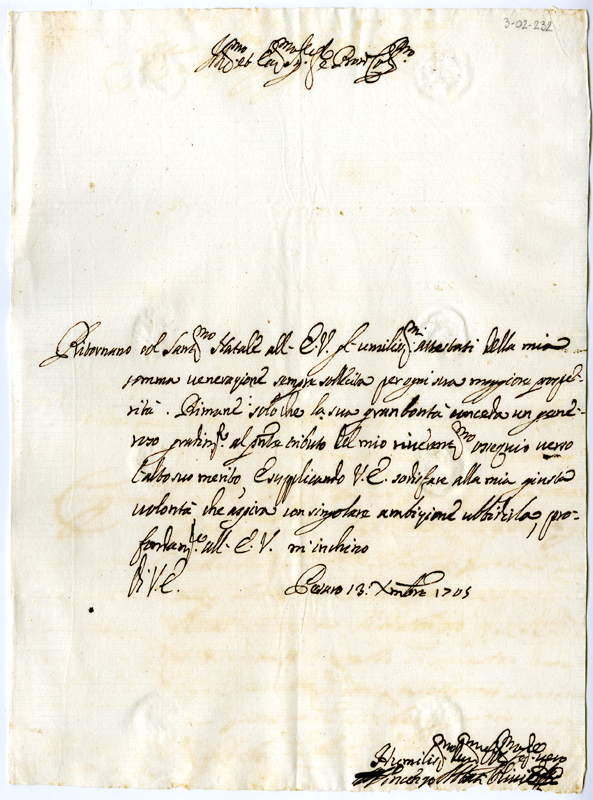 3-02-232
Ill.mo et Ecc.mo Sig.re e Pron Col.mo
Ritornano col Sant.mo Natale all' E.V. gl' umilis.mi attestati della mia
somma venerazione sempre sollecita per ogni sua maggiore prospe-
rità. Rimane solo che la sua gran bontà conceda un gene-
roso gradim.to al pnte tributo del mio riverent.mo ossequio verso
l'alto suo merito, e supplicando V.E. sodisfare alla mia giusta
volontà che aspira con singolare ambizione ubbidirla, pro-
fondam.te all' E.V. m'inchino
Di V.E. Pesaro 13: Xmbre 1705
Humilis.mo
Vincenzo